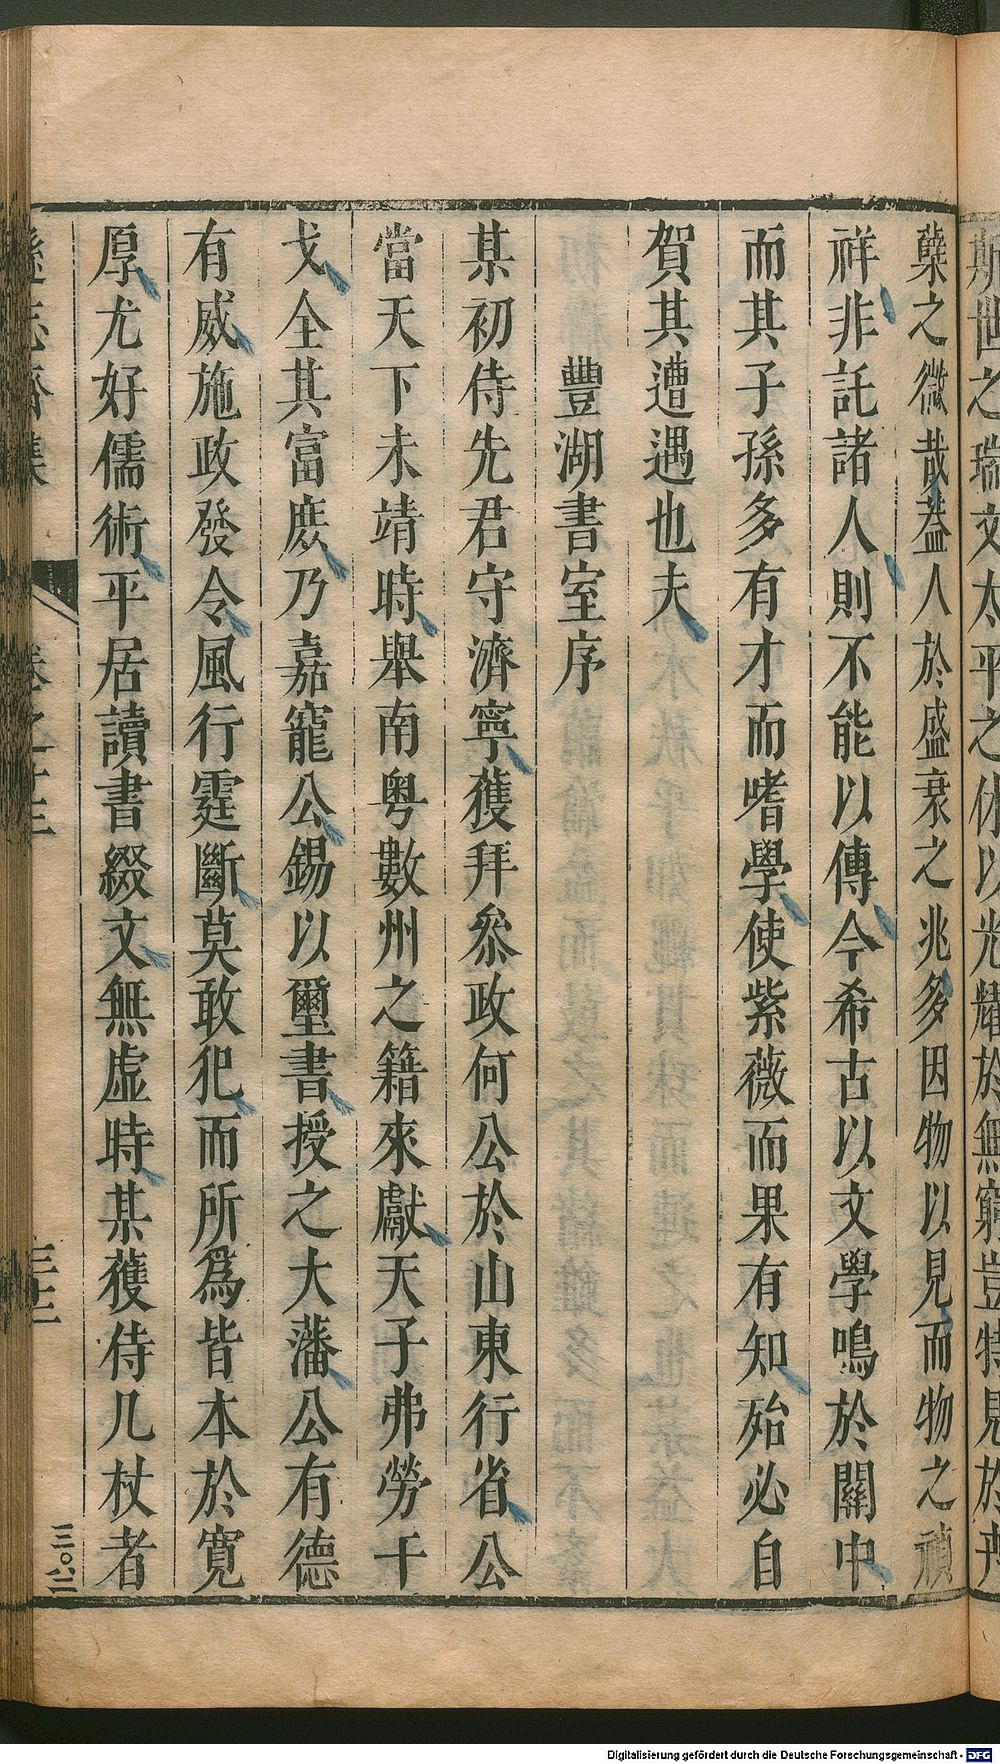 斯世之瑞文太平之休以光耀於無窮豈特見於卉
蘖之微哉葢人於盛衰之兆多因物以見而物之禎
祥非託諸人則不能以傳今希古以文學鳴於關中
而其子孫多有才而嗜學使紫薇而果有知殆必自
賀其遭遇也夫
豐湖書室序
某初侍先君守濟寧獲拜叅政何公於山東行省公
當天下未靖時舉南粤數州之籍來獻天子弗勞干
戈全其富庶乃嘉寵公錫以璽書授之大藩公有德
有威施政發令風行霆斷莫敢犯而所爲皆本於寬
厚尤好儒術平居讀書綴文無虛時某獲侍几杖者
遜志齋集
卷之十三
三十二
三〇二
Digitalisierung gefördert durch die Deutsche Forschungsgemeinschaft - DFG